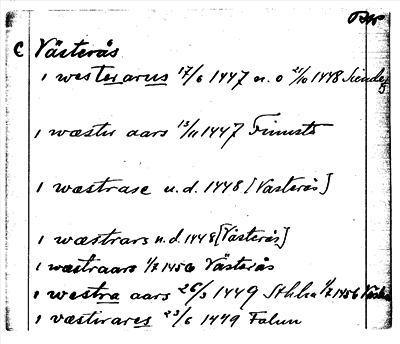 C Västerås
i westerarus 17/6 1447 n. o 21/10 1448
i wæster aars 13/11 1447
i wæstrase u.d. 1448 [Västerås]
i wæstrars u.d. 1448 [Västerås]
i wæstraars 1/7 1456 Västerås
i westra aars 26/3 1449 Sthlm 1/7 1456
i væstirares 23/6 1449 Falun